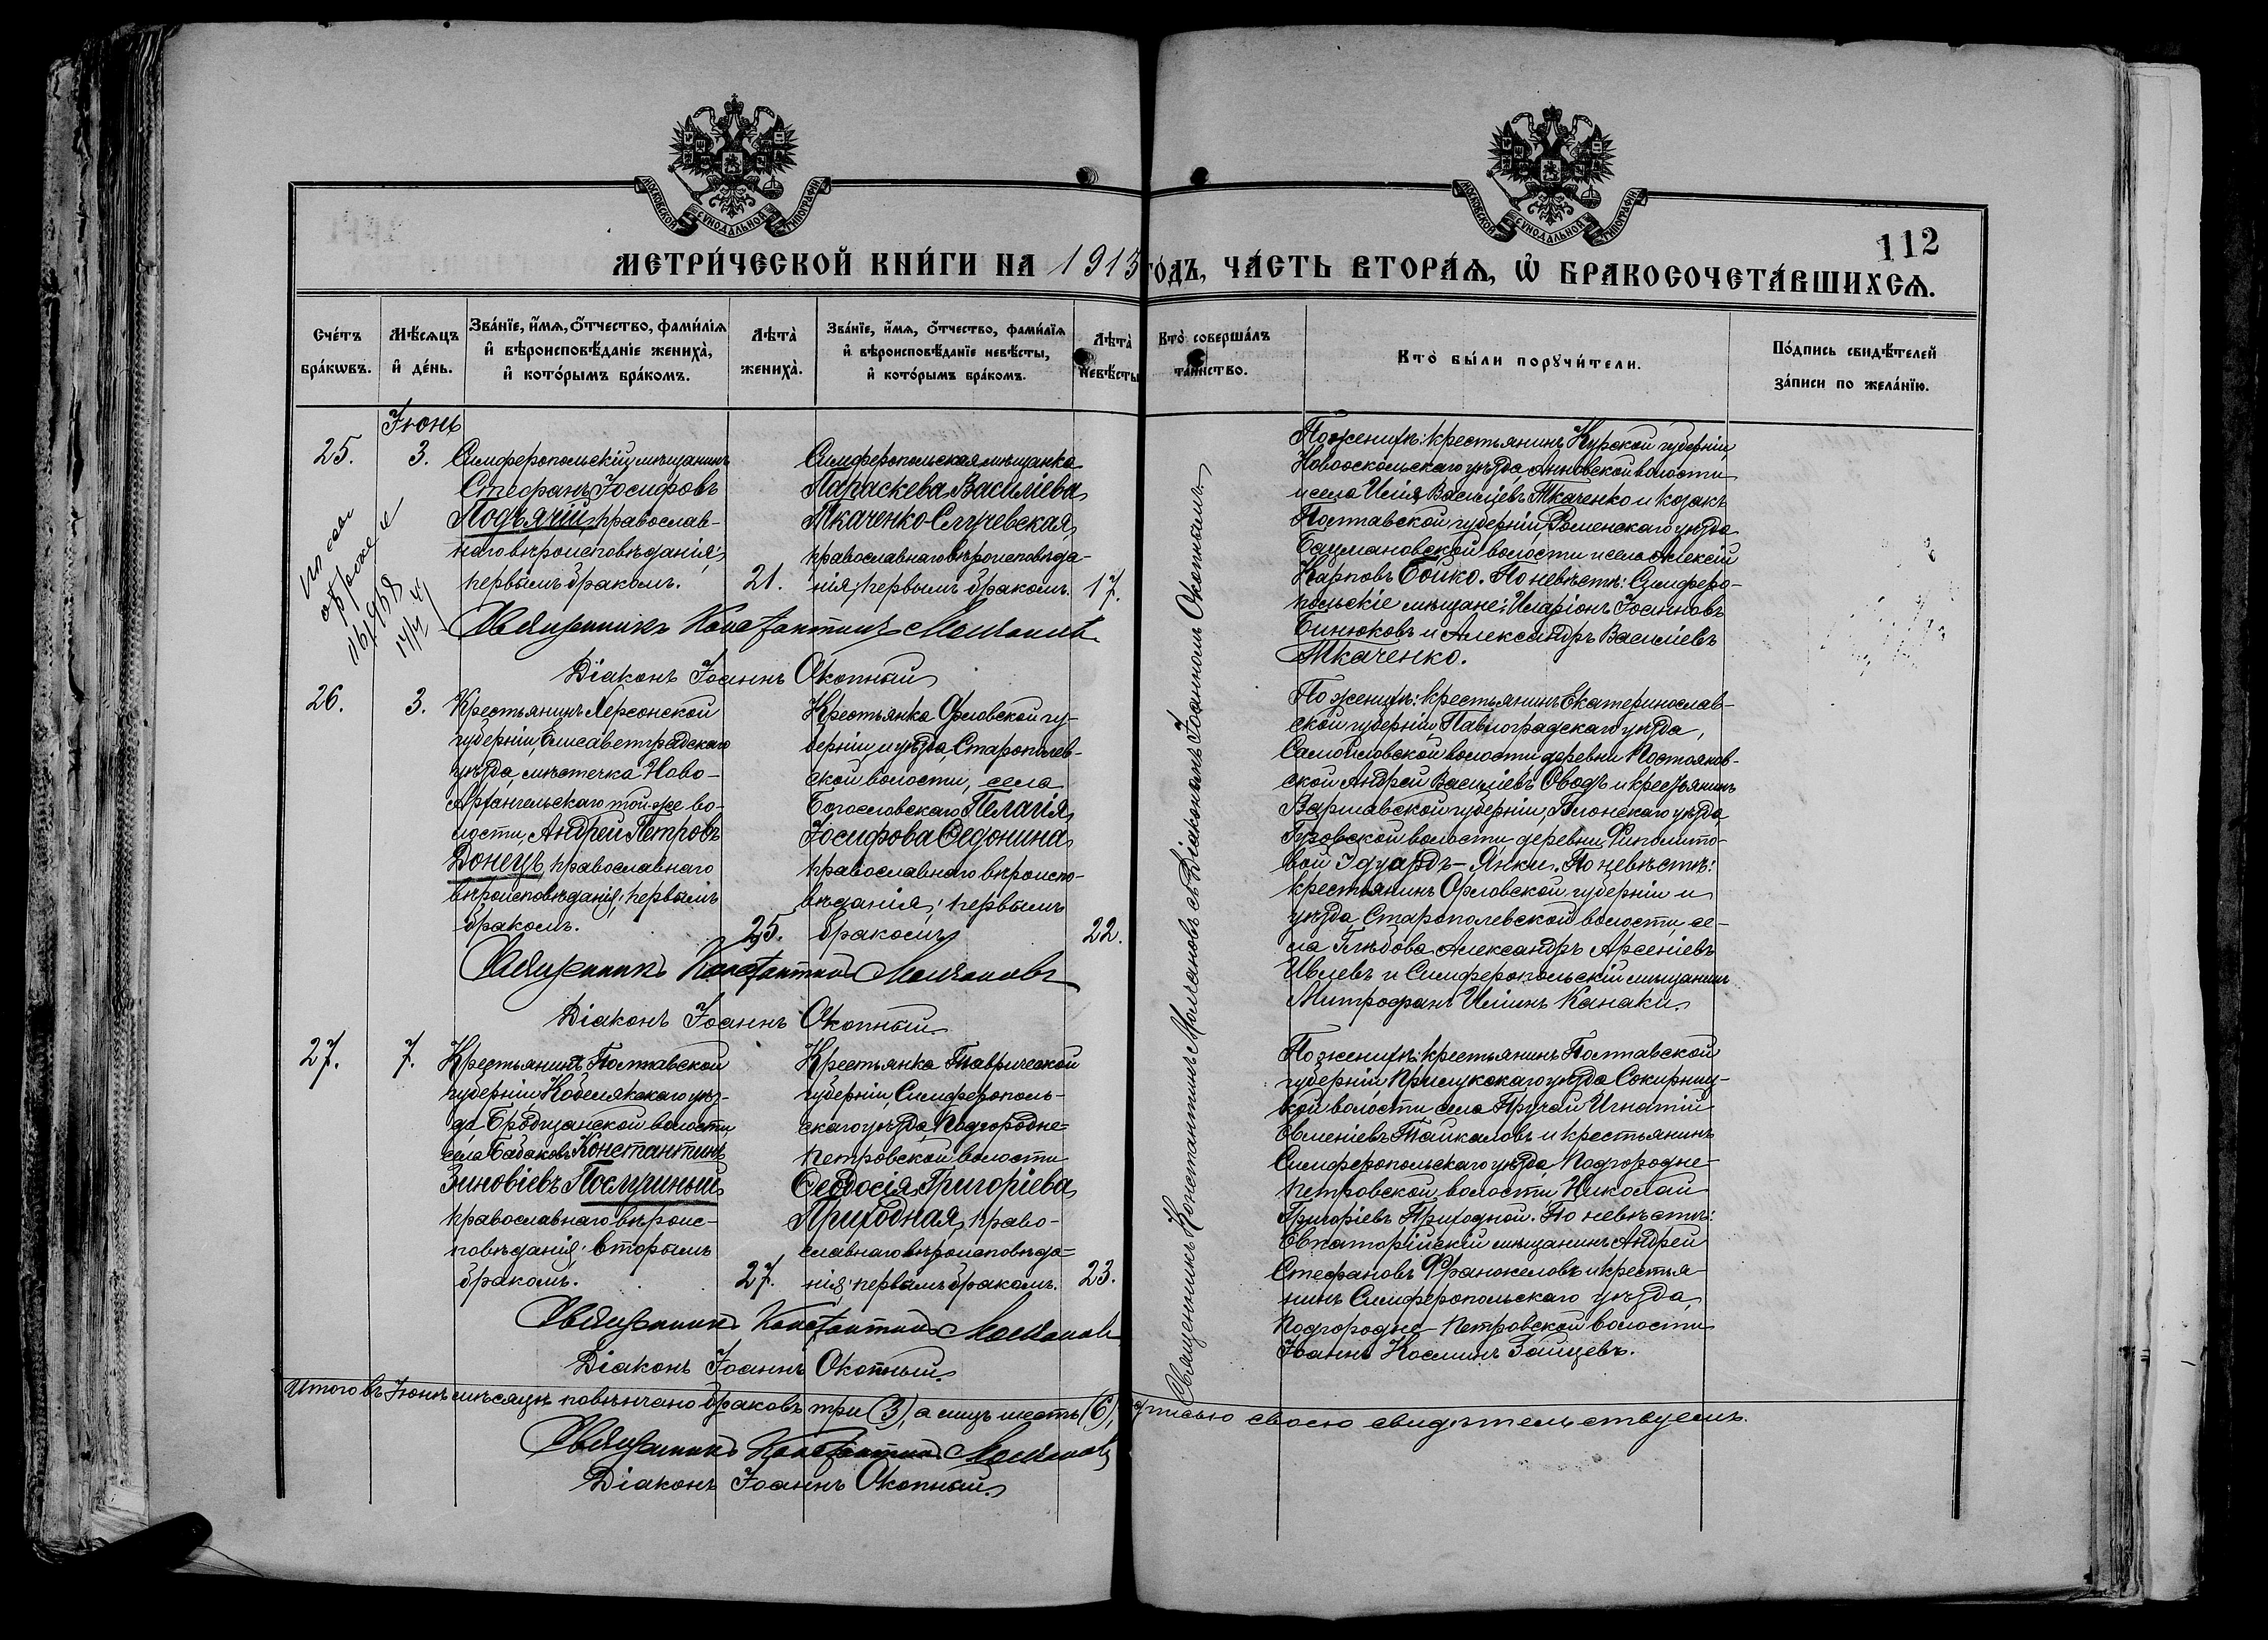 МОСКОВСКОЙ СѴНОДАЛЬНОЙ ТИПОГРАФІИ
МОСКОВСКОЙ СѴНОДАЛЬНОЙ ТИПОГРАФІИ
112
МЕТРИ́ЧЕСКОЙ КНИ́ГИ НА 1913 ГО́ДЪ, ЧА́СТЬ ВТОРА́Я, Ѡ҆ БРАКОСОЧЕТА́ВШИХСЯ.
Сче́тъ бра́кѡвъ.
Мѣ́сяцъ и҆ де́нь.
Зва́нїе, и҆́мя, ѻ҆́тчество, фами́лїя
и҆ вѣроисповѣ́данїе жениха̀,
и҆ кото́рымъ бра́комъ.
Лѣта̀ жениха̀.
Зва́нїе, и҆́мя, ѻ҆́тчество, фами́лїя
и҆ вѣроисповѣ́данїе невѣ́сты,
и҆ кото́рымъ бра́комъ.
Лѣта̀ невѣ́сты
Кто̀ соверша́лъ та́инство.
Кто̀ бы́ли порꙋчи́тели.
По́дпись свидѣ́телей
за́писи по жела́нїю.
Іюнь
25.
3.
Симферопольскій мѣщанинъ
Стефанъ Іосифовъ
Подъячій, православ-
наго вѣроисповѣданія;
первымъ бракомъ.
21.
Симферопольская мѣщанка
Параскева Василіева
Ткаченко-Случевская,
православнаго вѣроисповѣда-
нія; первымъ бракомъ.
17.
Священникъ Константинъ Молчановъ
Діаконъ Іоаннъ Окопный
По женихѣ: крестьянинъ Курской губерніи,
Новооскольскаго уѣзда Анновской волости
и села Илія Василіевъ Ткаченко и козакъ
Полтавской губерніи, Роменскаго уѣзда
Бацмановской волости и села Алексій
Карповъ Бойко. По невѣстѣ: Симферо-
польскіе мѣщане: Иларіонъ Іоанновъ
Бинюковъ и Александръ Василіевъ
Ткаченко.
26.
3.
Крестьянинъ Херсонской
губерніи, Елисаветградскаго
уѣзда, мѣстечка Ново-
Архангельскаго той-же во-
лости, Андрей Петровъ
Донецъ, православнаго
вѣроисповѣданія; первымъ
бракомъ.
25.
Крестьянка Орловской гу-
берніи и уѣзда, Старополев-
ской волости, села
Богословскаго Пелагія
Іосифова Федонина
православнаго вѣроиспо-
вѣданія; первымъ
бракомъ
22.
Священникъ Константинъ Молчановъ
Діаконъ Іоаннъ Окопный.
По женихѣ: крестьянинъ Екатеринослав-
ской губерніи, Павлоградскаго уѣзда,
Самойловской волости деревни Постоянов-
ской Андрей Василіевъ Оводъ и крестьянинъ
Варшавской губерніи, Блонскаго уѣзда
Гузовской волости, деревни Филолито-
вой Эдуардъ - Янки. По невѣстѣ:
крестьянинъ Орловской губерніи и
уѣзда, Старополевской волости, се-
ла Глѣбова Александръ Арсеніевъ
Ивлевъ и Симферопольскій мѣщанинъ
Митрофанъ Иліинъ Канаки.
27.
7.
Крестьянинъ Полтавской
губерніи, Кобелякскаго уѣз-
да Бродщанской волости
села Бабаковъ Константинъ
Зиновіевъ Послушный
православнаго вѣроис-
повѣданія; вторымъ
бракомъ.
27.
Крестьянка Таврической
губерніи, Симферополь-
скаго уѣзда, Подгородне-
Петровской волости
Феодосія Григоріева
Приходная, право-
славнаго вѣроисповѣда-
нія; первымъ бракомъ.
23.
Священникъ Константинъ Молчановъ
Діаконъ Іоаннъ Окопный.
По женихѣ: крестьянинъ Полтавской
губерніи Прилукскаго уѣзда Сокириц-
кой волости, села Пручай Игнатій
Евменіевъ Тайкаловъ и крестьянинъ
Симферопольскаго уѣзда, Подгородне-
Петровской волости, Николай
Григоріевъ Приходной. По невѣстѣ:
Евпаторійскій мѣщанинъ Андрей
Стефановъ Франжеловъ и крестья-
нинъ Симферопольскаго уѣзда,
Подгородне-Петровской волости
Іоаннъ Косминъ Зайцевъ.
Священникъ Константинъ Молчановъ съ Діакономъ Іоанномъ Окопнымъ.
Итого въ Іюнѣ мѣсяцѣ повѣнчано браковъ три (3), а лицъ шесть (6), подписью своею свидѣтельствуемъ.
Священникъ Константинъ Молчановъ
Діаконъ Іоаннъ Окопный.